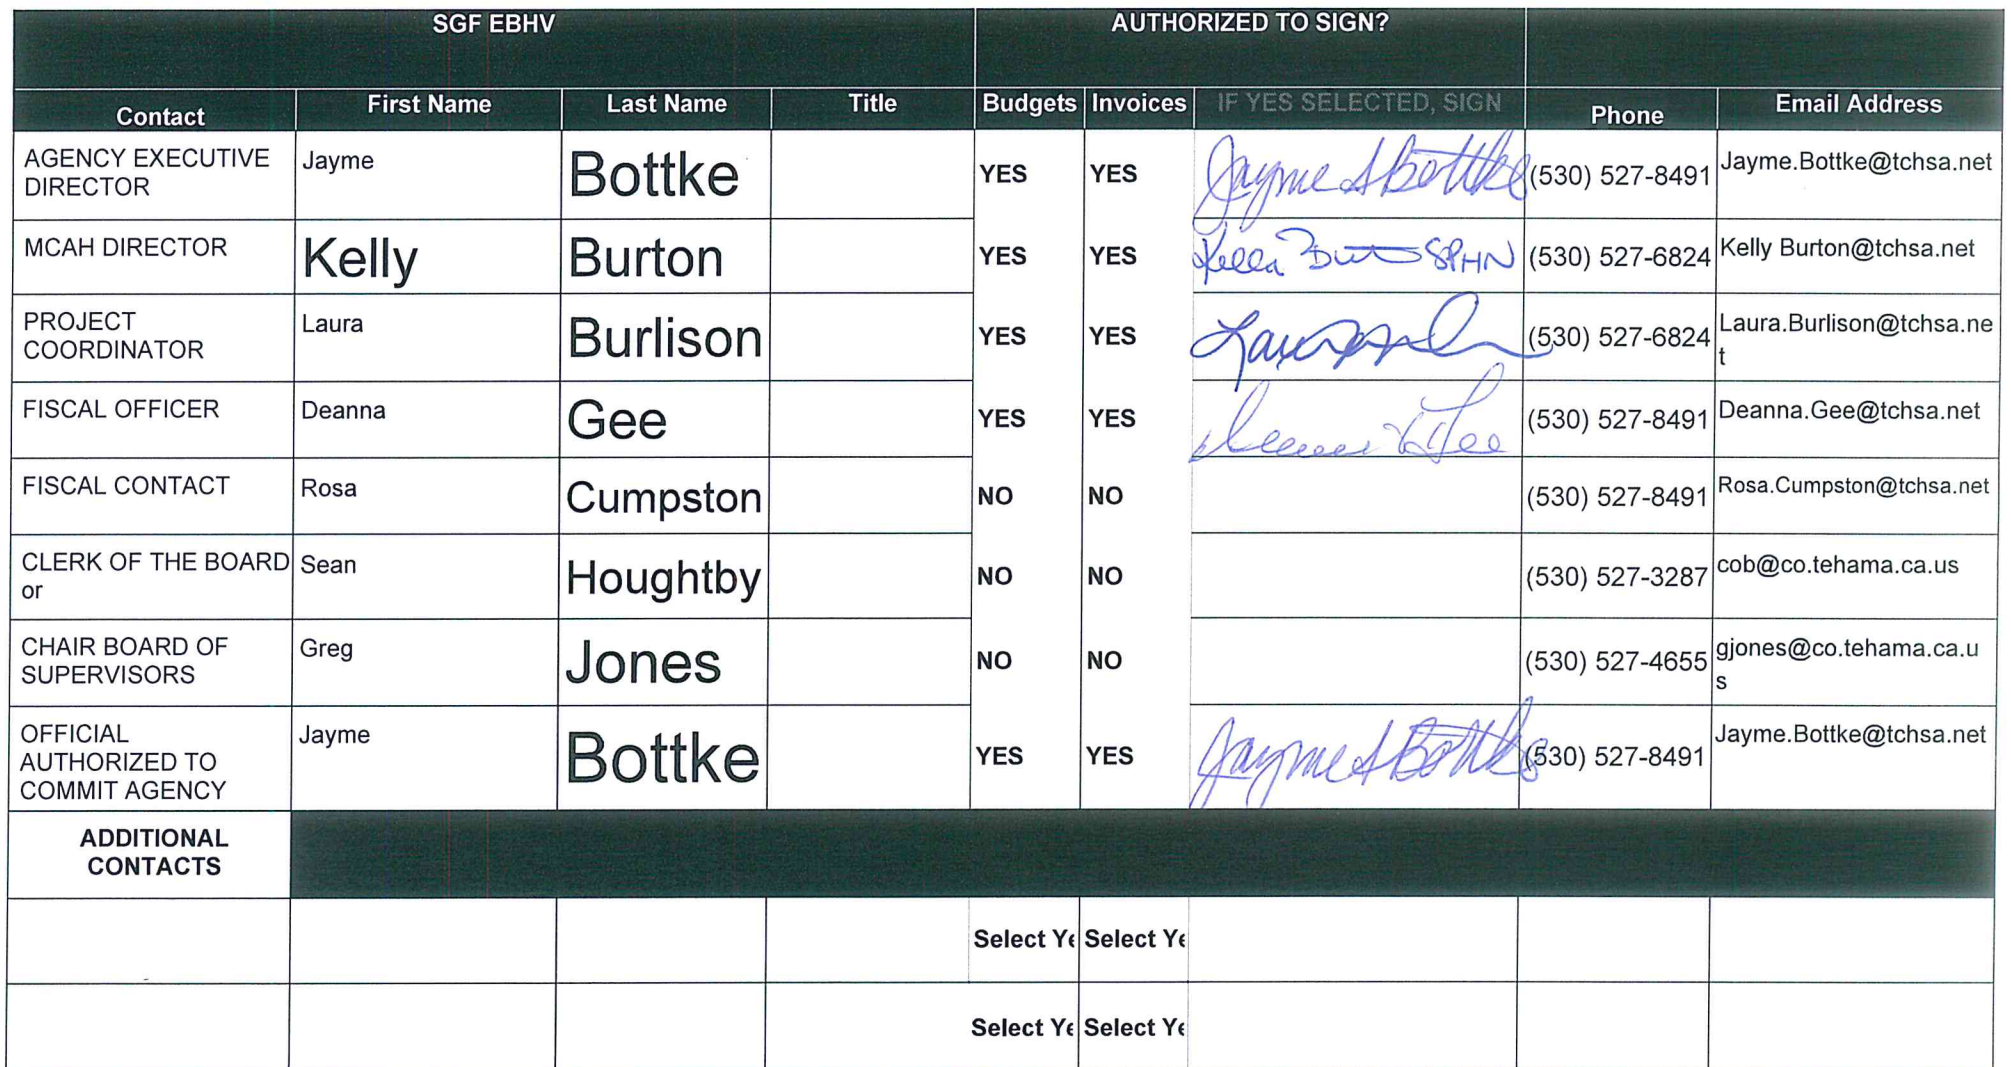 SGF EBHV AUTHORIZED TO SIGN?
Contact First Name Last Name Title Budgets Invoices IF YES SELECTED, SIGN Phone Email Address
AGENCY EXECUTIVE
DIRECTOR
Jayme Bottke YES YES Jayme S Bottke (530) 527-8491 Jayme.Bottke@tchsa.net
MCAH DIRECTOR Kelly Burton YES YES Kelly Burt SPHN (530) 527-6824 Kelly Burton@tchsa.net
PROJECT
COORDINATOR
Laura Burlison YES YES (530) 527-6824 Laura.Burlison@tchsa.ne
t
FISCAL OFFICER Deanna Gee YES YES Gee (530) 527-8491 Deanna.Gee@tchsa.net
FISCAL CONTACT Rosa Cumpston NO NO (530) 527-8491 Rosa.Cumpston@tchsa.net
CLERK OF THE BOARD
or
Sean Houghtby NO NO (530) 527-3287 cob@co.tehama.ca.us
CHAIR BOARD OF
SUPERVISORS
Greg Jones NO NO (530) 527-4655 gjones@co.tehama.ca.u
s
OFFICIAL
AUTHORIZED TO
COMMIT AGENCY
Jayme Bottke YES YES Jayme S Bottke (530) 527-8491 Jayme.Bottke@tchsa.net
ADDITIONAL
CONTACTS
Select Ye Select Ye
Select Ye Select Ye